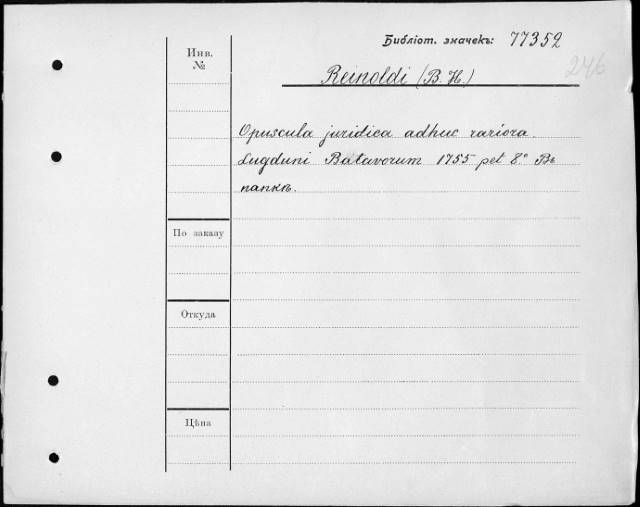 Библіот. значекъ: 77352
246
Инв. №
Reinoldi (B. H.)
Opuscula juridica adhuc rariora.
Lugduni Batavorum 1755 pet 8.° Въ
папкѣ.
По заказу
Откуда
Цѣна